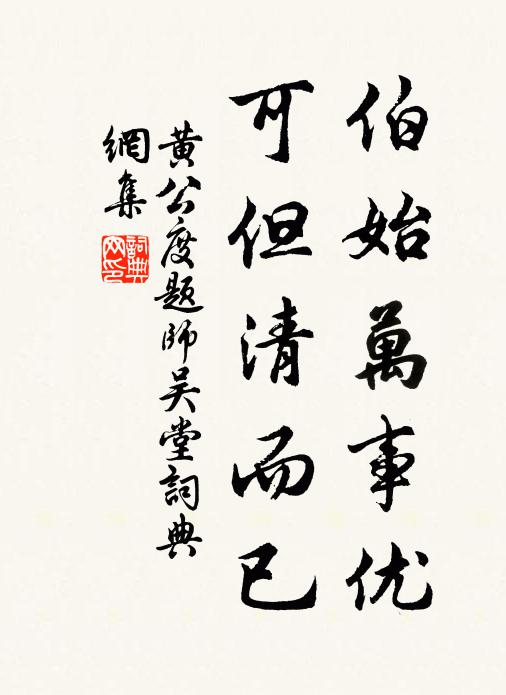 伯始萬事优
可但清而已
黄公度题師吴堂詞典
網集
詞典网印